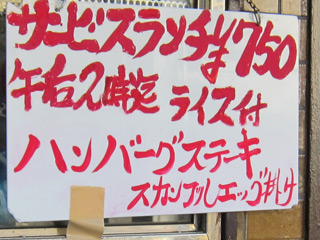 サービスランチ¥750
午右2時迄 ライス付
ハンバーグステーキ
スカンブルエッグ掛け